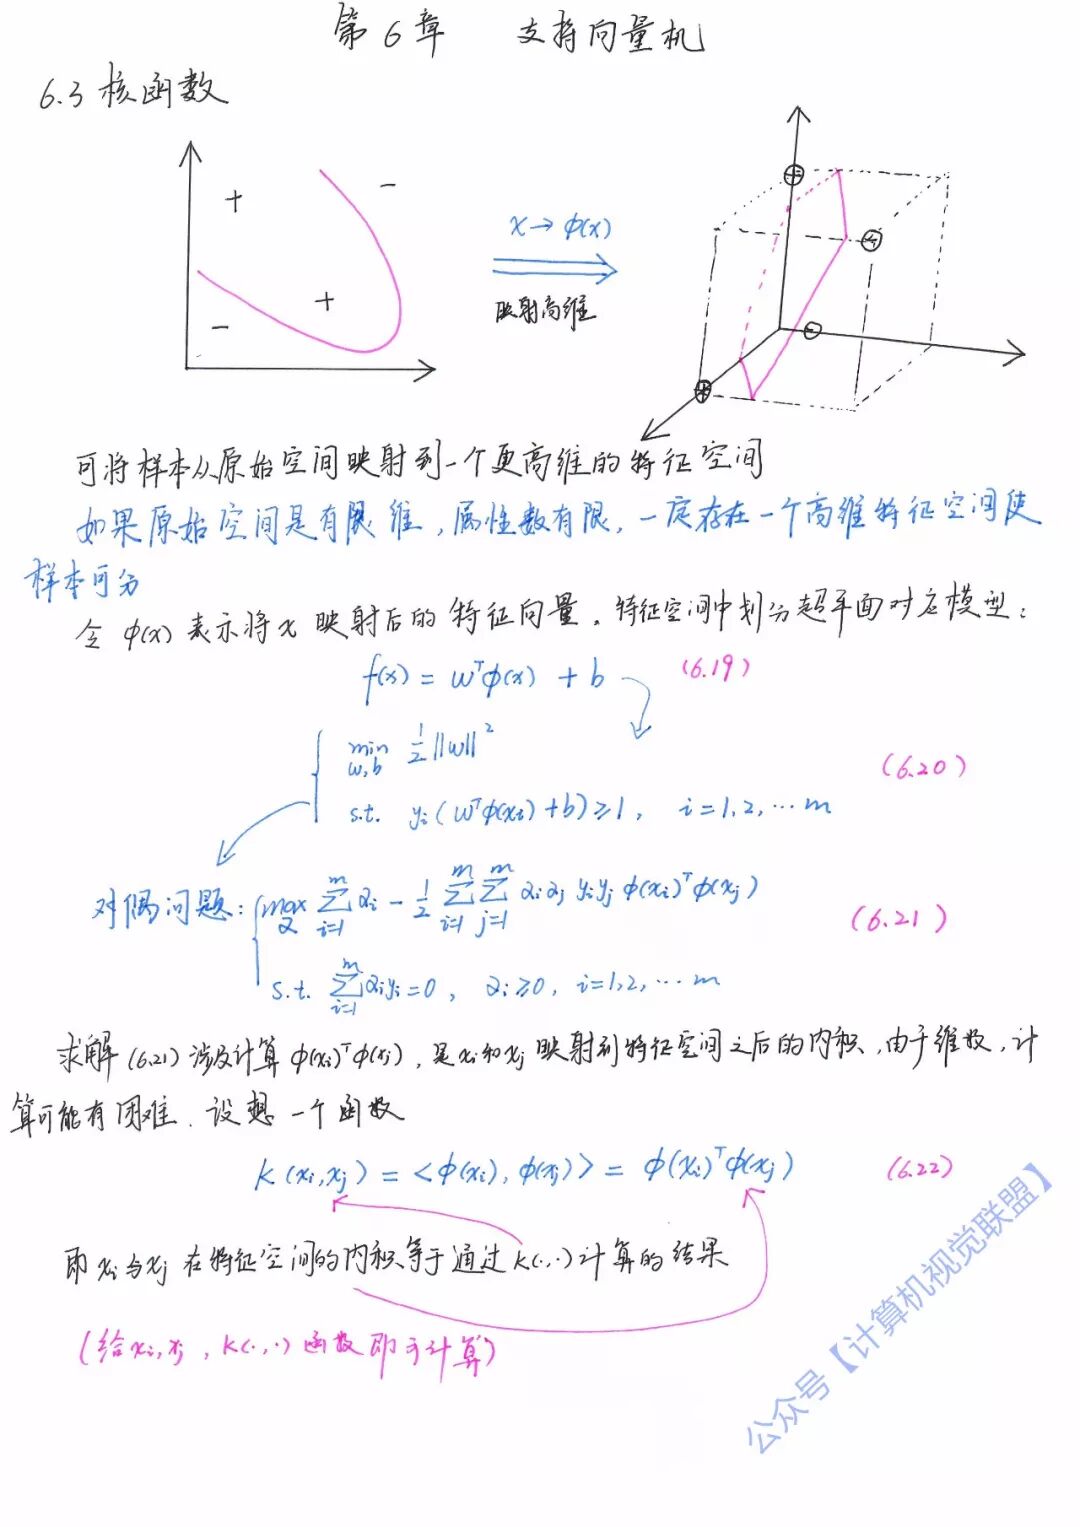 第6章 支持向量机
6.3 核函数
+ -
x→ϕ(x)
+
映射高维
-
可将样本从原始空间映射到一个更高维的特征空间
如果原始空间是有限维,属性数有限,一定存在一个高维特征空间使
样本可分
令 ϕ(x) 表示将x 映射后的特征向量。特征空间中划分超平面对应模型:
f(x) = wᵀϕ(x) + b (6.19)
min w,b ½||w||² (6.20)
s.t. yᵢ(wᵀϕ(xᵢ)+b)≥1, i=1,2,…m
对偶问题: max α ∑ᵢ₌₁ᵐ αᵢ - ½ ∑ᵢ₌₁ᵐ ∑ⱼ₌₁ᵐ αᵢαⱼ yᵢyⱼ ϕ(xᵢ)ᵀϕ(xⱼ) (6.21)
s.t. ∑ᵢ₌₁ᵐ αᵢyᵢ=0, αᵢ≥0, i=1,2,…m
求解(6.21)涉及计算 ϕ(xᵢ)ᵀϕ(xⱼ), 是xᵢ和xⱼ映射到特征空间之后的内积,由于维数,计
算可能有困难. 设想一个函数
k(xᵢ,xⱼ) = <ϕ(xᵢ),ϕ(xⱼ)> = ϕ(xᵢ)ᵀϕ(xⱼ) (6.22)
即xᵢ与xⱼ在特征空间的内积等于通过k(·,·)计算的结果
(给xᵢ,xⱼ,k(·,·)函数即可计算)
公众号【计算机视觉联盟】